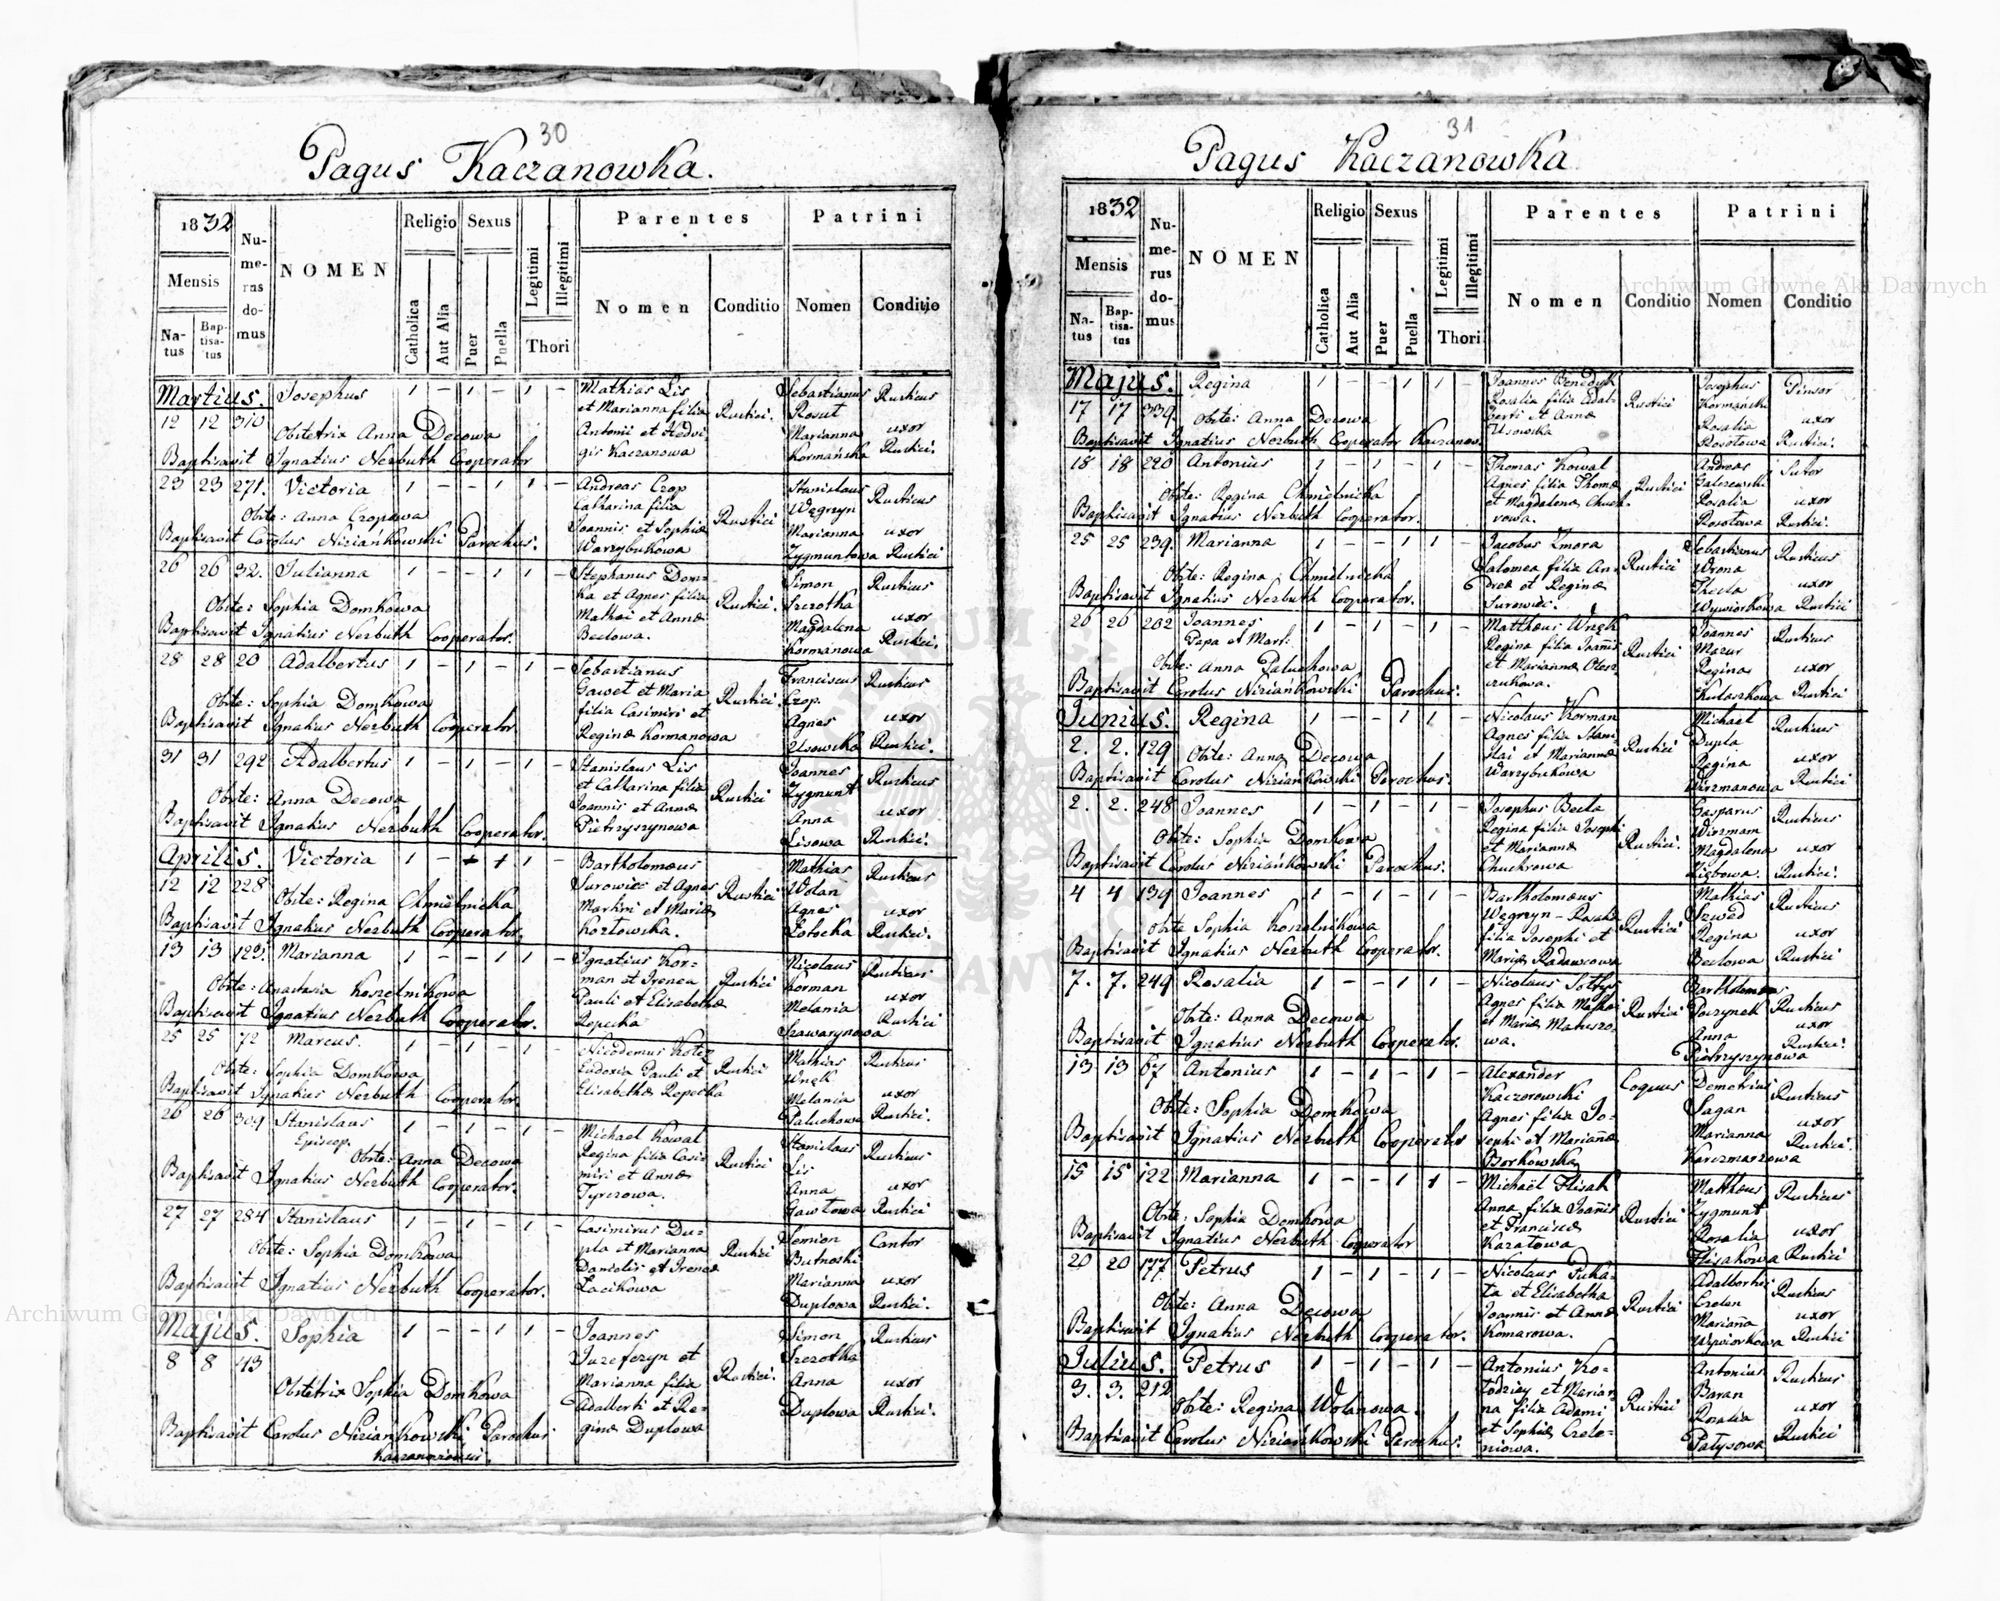 30
Pagus Kaczanowka.
1832
Mensis
Natus
Baptisatus
Numerus domus
NOMEN
Religio
Catholica
Aut Alia
Sexus
Puer
Puella
Legitimi
Illegitimi
Thori
Parentes
Nomen
Conditio
Patrini
Nomen
Conditio
Martius. Josephus 1 – 1 – 1 – Mathias Lis Sebastianus Rusticus
12 12 310 et Marianna filia Rustici. Kosut
Obstetrix Anna Decowa Antonii et Hedvi Marianna uxor
Baptisavit Ignatius Nerbuth Cooperator gis Kaczanowa Kormańska Rustici.
23 23 271. Victoria 1 – – 1 1 – Andreas Czop Stanislaus Rusticus
Obste: Anna Czopowa Catharina filia Rustici Węgrzyn
Joannis et Sophiæ Marianna uxor
Baptisavit Carolus Niziankowski Parochus. Warzybukowa Zygmuntowa Rustici
26 26 32. Julianna 1 – – 1 1 – Stephanus Dom= Simon Rusticus
Obste: Sophia Domkowa ka et Agnes filia Rustici. Szczotka
Mathæi et Annæ Magdalena uxor
Baptisavit Ignatius Nerbuth Cooperator. Beclowa. Kormanowa Rustici.
28 28 20 Adalbertus 1 – 1 – 1 – Sebastianus Franciscus Rusticus
Obste: Sophia Domkowa Gawet et Maria Rustici. Czop.
filia Casimiri et Agnes uxor
Baptisavit Ignatius Nerbuth Cooperator. Reginæ Kormanowa Usowska Rustici.
31 31 292 Adalbertus 1 – 1 – 1 – Stanislaus Lis Joannes Rusticus
Obste: Anna Decowa et Catharina filia Rustici Zygmunt
Joannis et Annæ Anna uxor
Baptisavit Ignatius Nerbuth Cooperator. Pietrzyszynowa Lisowa Rustici.
Aprilis. Victoria 1 – + + 1 – Bartholomæus Mathias Rusticus
12 12 228 Surowiec et Agnes Rustici Wolan
Obste: Regina Chmielnicka Martini et Mariæ Agnes uxor
Baptisavit Ignatius Nerbuth Cooperator. Kozłowska. Rustici.
13 13 123. Marianna 1 – – 1 1 – Ignatius Kor= Nicolaus Rusticus
Obste: Anastasia Koszelnikowa man et Irenea Rustici Korman
Pauli et Elisabethæ Melania uxor
Baptisavit Ignatius Nerbuth Cooperator. Repecka Szawarynowa Rustici
25 25 72 Marcus. 1 – 1 – 1 – Nicodemus Mathias Rusticus
Obste: Sophia Domkowa Eudoxia Pauli et Rustici Wnęk
Baptisavit Ignatius Nerbuth Cooperator. Elisabethæ Repecka Melania uxor
Paluchowa Rustici.
26 26 309 Stanislaus 1 – 1 – 1 – Michael Kowal Stanislaus Rusticus
Episcop. Regina filia Casi= Rustici Lis
Obste: Anna Decowa miri et Annæ Anna uxor
Baptisavit Ignatius Nerbuth Cooperator. Tyrczowa. Gawłowa Rustici
27 27 284 Stanislaus 1 – 1 – 1 – Casimirus Du= Cantor
Obste: Sophia Domkowa pla et Marianna Rustici Butnoski
Danielis et Irenæ Marianna uxor
Baptisavit Ignatius Nerbuth Cooperator. Łacikowa Duplowa Rustici.
Majus. Sophia 1 – – 1 1 – Joannes Simon Rusticus
8 8 43 Juzefczyn et Rustici. Szczotka
Obstetrix Sophia Domkowa Marianna filia Anna uxor
Adalberti et Re= Duplowa Rustici.
Baptisavit Carolus Niziankowski Parochus ginæ Duplowa
31
Pagus Kaczanowka
1832
Mensis
Natus
Baptisatus
Numerus domus
NOMEN
Religio
Catholica
Aut Alia
Sexus
Puer
Puella
Legitimi
Illegitimi
Thori
Parentes
Nomen
Conditio
Patrini
Nomen
Conditio
Majus. Regina 1 – – 1 1 – Joannes Benedyk Josephus Pinsor
17 17 339. Rosalia filia Adal= Rustici Kormański
Obste: Anna Decowa berti et Annæ Rosalia uxor
Baptisavit Ignatius Nerbuth Cooperator Kaczanow. Usowska Kosotowa Rustici.
18 18 220 Antonius 1 – 1 – 1 – Thomas Kowal Andreas Sutor
Obste: Regina Chmielnicka Agnes filia Thomæ Rustici Galczewski
et Magdalena Chuch= Rosalia uxor
Baptisavit Ignatius Nerbuth Cooperator. rowa. Kosotowa Rustici.
25 25 239. Marianna 1 – – 1 1 – Jacobus Zmora Sebastianus Rusticus
Obste: Regina Chmielnicka Salomea filia An= Rustici Wrona
dreæ et Reginæ Thecla uxor
Baptisavit Ignatius Nerbuth Cooperator. Surowiec. Wywiorkowa Rustici
26 26 202 Joannes 1 – 1 – 1 – Matthæus Wnęk Joannes Rusticus
Papa et Mart: Regina filia Joanis Rustici Mazur
Obste: Anna Paluchowa et Mariannæ Regina uxor
Baptisavit Carolus Niziańkowski Parochus. Kulaszkowa Rustici
Junius. Regina 1 – – 1 1 – Nicolaus Korman Michael Rusticus
2. 2. 129 Agnes filia Stani= Rustici Dupla
Obste: Anna Decowa slai et Mariannæ Regina uxor
Baptisavit Carolus Niziankowski Parochus. Warzybukowa Wirzmanowa Rustici
2. 2. 248 Joannes 1 – 1 – 1 – Josephus Becla Gasparus Rusticus
Obste: Sophia Domkowa Regina filia Josephi Rustici. Wirzmam
et Mariannæ Magdalena uxor
Baptisavit Carolus Niziańkowski Parochus. Chuchrowa Rustici.
4 4 139 Joannes 1 – 1 – 1 – Bartholomæus Mathias Rusticus
Obste Sophia Koszelnikowa Węgrzyn – Rosalia Rustici Szwed
filia Josephi et Regina uxor
Baptisavit Ignatius Nerbuth Cooperator. Mariæ Radawcowa Beclowa Rustici
7. 7. 249 Rosalia 1 – – 1 1 – Nicolaus Sołtys Bartholomæus Rusticus
Obste: Anna Decowa Agnes filia Mathæi Rustici Poczynek
et Mariæ Matuszo= Anna uxor
Baptisavit Ignatius Nerbuth Cooperator. wa. Pietrzyszynowa Rustici.
13 13 67 Antonius 1 – 1 – 1 – Alexander Coquus Demetrius Rusticus
Obste: Sophia Domkowa Kaczorowski Sagan
Agnes filia Jo= Marianna uxor
Baptisavit Ignatius Nerbuth Cooperator sephi et Mariañæ Karczmarzowa Rustici.
Borkowska
15 15 122 Marianna 1 – – 1 1 – Michaël Flisak Matthæus Rusticus
Obste: Sophia Domkowa Anna filia Joanis Rustici Zygmunt
et Franciscæ Rosalia uxor
Baptisavit Ignatius Nerbuth Cooperator Karatowa Flisakowa Rustici
20 20 177 Petrus 1 – 1 – 1 – Nicolaus Puka= Rusticus
Obste: Anna Decowa ta et Elisabetha Rustici
Joannis et Annæ Mariaña uxor
Baptisavit Ignatius Nerbuth Cooperator. Komarowa. Wywiorkowa Rustici
Julius. Petrus 1 – 1 – 1 – Antonius Ko= Antonius Rusticus
3. 3. 212 łodziey et Marian= Rustici Baran
Obste: Regina Wolanowa. na filia Adami Rosalia uxor
Baptisavit Carolus Niziańkowski Parochus. et Sophiæ Czele= Patysowa Rustici
niowa.
Archiwum Główne Akt Dawnych
Archiwum Główne Akt Dawnych